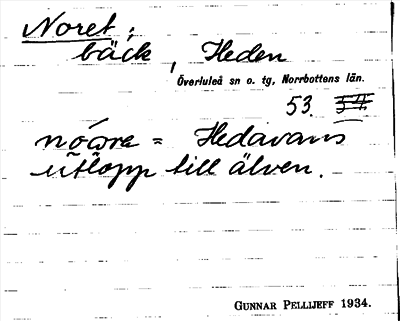 Noret;
bäck, Heden
Överluleå sn o. tg, Norrbottens län.
53. 54.
nóωra = Hedavans
utlopp till älven.
GUNNAR PELLIJEFF 1934.